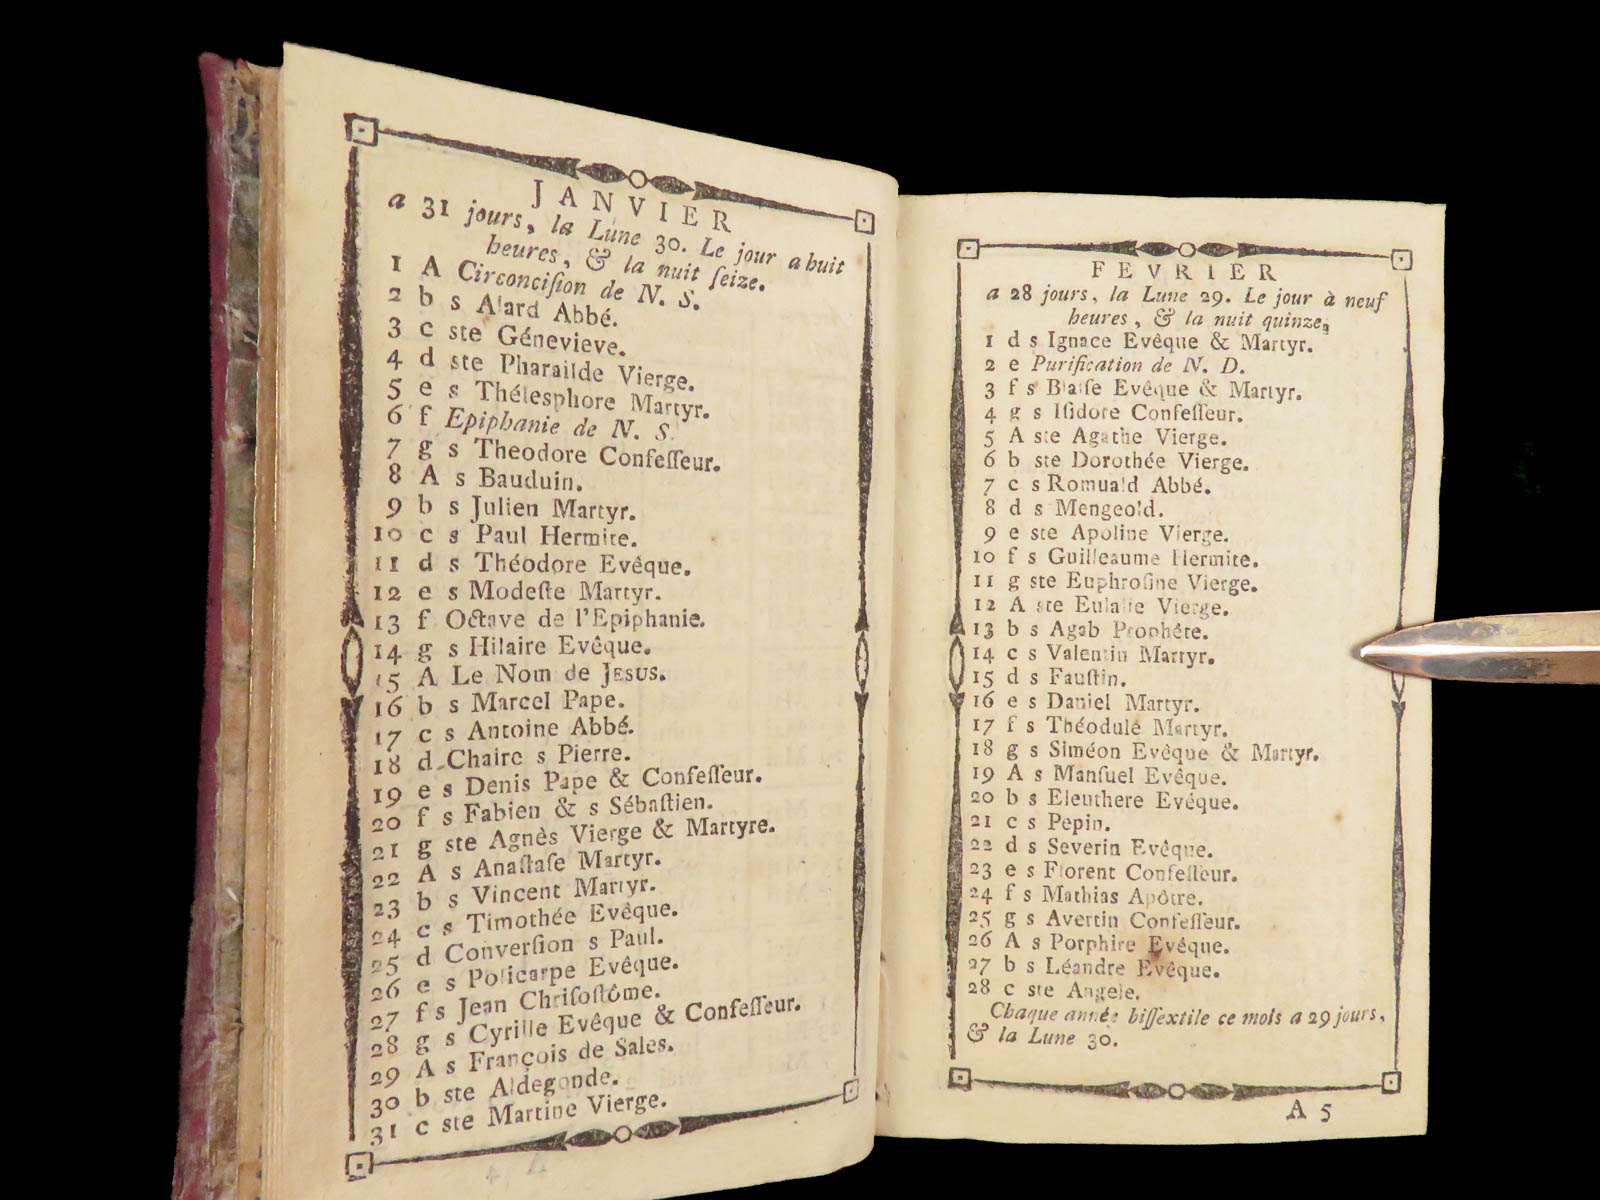 JANVIER
a 31 jours, la Lune 30. Le jour a huit
heures, & la nuit ſeize.
1 A Circonciſion de N. S.
2 b s Alard Abbé.
3 c ste Génevieve.
4 d ste Pharailde Vierge.
5 e s Thélesphore Martyr.
6 f Epiphanie de N. S.
7 g s Theodore Confeſſeur.
8 A s Bauduin.
9 b s Julien Martyr.
10 c s Paul Hermite.
11 d s Théodore Evêque.
12 e s Modeſte Martyr.
13 f Octave de l'Epiphanie.
14 g s Hilaire Evêque.
15 A Le Nom de JESUS.
16 b s Marcel Pape.
17 c s Antoine Abbé.
18 d Chaire s Pierre.
19 e s Denis Pape & Confeſſeur.
20 f s Fabien & s Sébaſtien.
21 g ste Agnès Vierge & Martyre.
22 A s Anaſtaſe Martyr.
23 b s Vincent Martyr.
24 c s Timothée Evêque.
25 d Converſion s Paul.
26 e s Policarpe Evêque.
27 f s Jean Chriſoſtôme.
28 g s Cyrille Evêque & Confeſſeur.
29 A s François de Sales.
30 b ste Aldegonde.
31 c ste Martine Vierge.
FEVRIER
a 28 jours, la Lune 29. Le jour à neuf
heures, & la nuit quinze,
1 d s Ignace Evêque & Martyr.
2 e Purification de N. D.
3 f s Blaiſe Evêque & Martyr.
4 g s Iſidore Confeſſeur.
5 A ste Agathe Vierge.
6 b ste Dorothée Vierge.
7 c s Romuald Abbé.
8 d s Mengeold.
9 e ste Apoline Vierge.
10 f s Guilleaume Hermite.
11 g ste Euphroſine Vierge.
12 A ste Eulalie Vierge.
13 b s Agab Prophête.
14 c s Valentin Martyr.
15 d s Fauſtin.
16 e s Daniel Martyr.
17 f s Théodule Martyr.
18 g s Siméon Evêque & Martyr.
19 A s Manſuel Evêque.
20 b s Eleuthere Evêque.
21 c s Pepin.
22 d s Severin Evêque.
23 e s Florent Confeſſeur.
24 f s Mathias Apôtre.
25 g s Avertin Confeſſeur.
26 A s Porphire Evêque.
27 b s Léandre Evêque.
28 c ste Angele.
Chaque année biſſextile ce mois a 29 jours,
& la Lune 30.
A 5